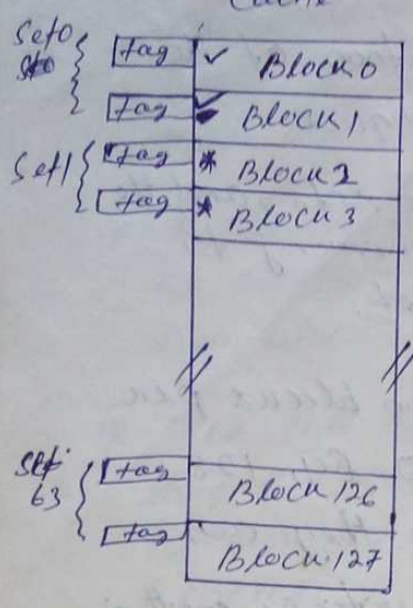 Cache
Set0
tag ✓ Block 0
tag ✓ Block 1
Set1 tag * Block 2
tag * Block 3
Set
63
tag Block 126
tag Block 127